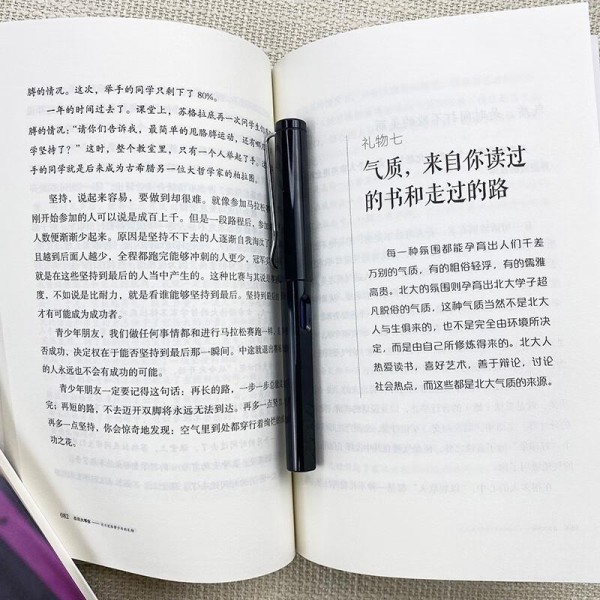 膊的情况。这次，举手的同学只剩下了 80%。
一年的时间过去了。课堂上，苏格拉底再一次问学生们
膊的情况：“请你们告诉我，最简单的甩胳膊运动，还有哪
学坚持了？”这时，整个教室里，只有一个人举起了手。
手的同学就是后来成为古希腊另一位大哲学家的柏拉图。
坚持，说起来容易，要做到却很难。就像参加马拉松
刚开始参加的人可以说是成百上千。但是一段路程后，参加
人数便渐渐少起来。原因是坚持不下去的人逐渐自我淘汰了
且越到后面人越少，全程都跑完能够冲刺的人更少，冠军
就是在这些坚持到最后的人当中产生的。这种比赛与其说是
度，不如说是比耐力，就是看谁能够坚持到最后。坚持到最后
才有可能成为成功者。
青少年朋友，我们做任何事情都和进行马拉松赛跑一样，
否成功，决定权在于能否坚持到最后那一瞬间。中途就退
的人永远也不会有成功的可能。
青少年朋友一定要记得这句话：再长的路，一步一步总能
完；再短的路，不去迈开双脚将永远无法到达。再多一点努
再多一点坚持，你会惊奇地发现：空气里到处都穿行着绚烂的
功之花。
082
礼物七
气质，来自你读过
的书和走过的路
每一种氛围都能孕育出人们千差
万别的气质，有的粗俗轻浮，有的儒雅
高贵。北大的氛围则孕育出北大学子超
凡脱俗的气质，这种气质当然不是北大
人与生俱来的，也不是完全由环境所决
定，而是由自己所修炼得来的。北大人
热爱读书，喜好艺术，善于辩论，讨论
社会热点，而这些都是北大气质的来源。